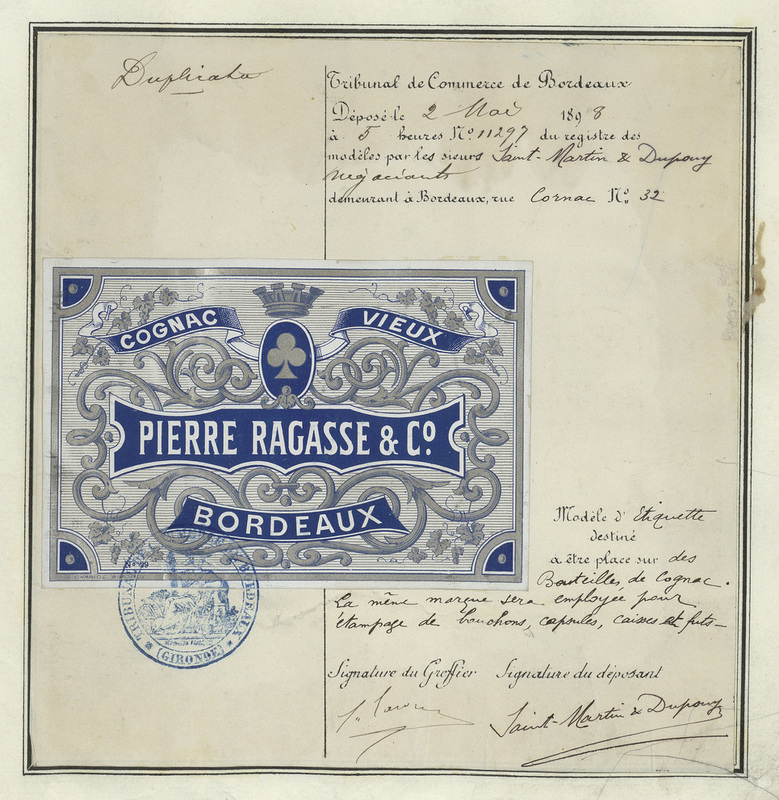 Duplicata
Tribunal de Commerce de Bordeaux
Déposé le 2 Mai 1898
à 5 heures Nº 11297 du registre des
modèles par les sieurs Saint-Martin & Dupouy
négociants
demeurant à Bordeaux, rue Cornac Nº 32
COGNAC VIEUX
PIERRE RAGASSE & Cº
BORDEAUX
Modèle d'Etiquette
destiné
à être place sur des
Bouteilles de Cognac.
La même marque sera employée pour
étampage de bouchons, capsules, caisses et futs-
TRIBUNAL DE BORDEAUX
(GIRONDE)
Signature du Greffier Signature du déposant
Saint-Martin & Dupouy